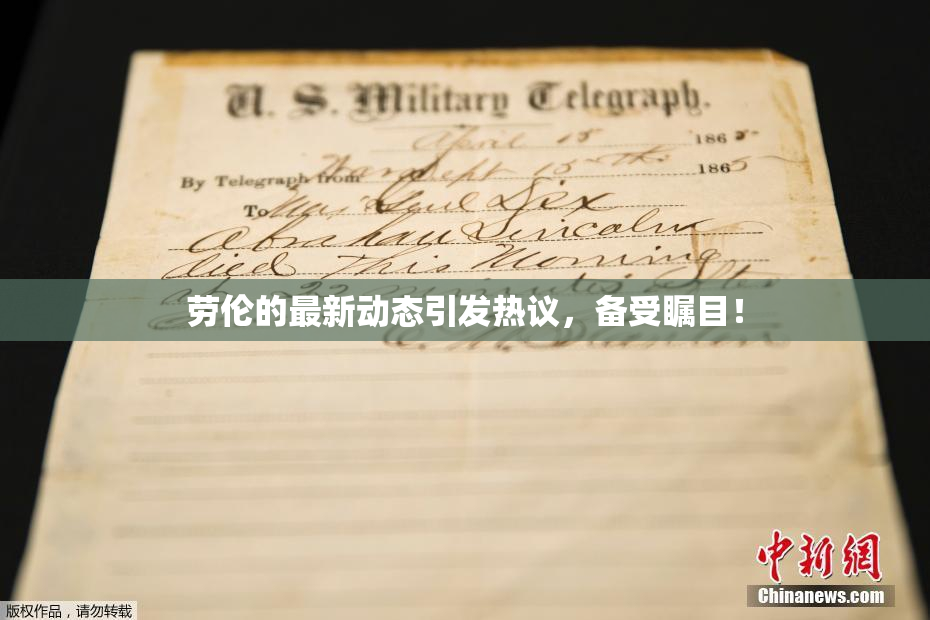 U. S. Military Telegraph.
April 15 1865
By Telegraph from War Dept 15th 1865
To Maj Genl Dix
Abraham Lincoln
died This Morning
at 22 minutes after
劳伦的最新动态引发热议，备受瞩目！
E. M. Stanton
中新网
Chinanews.com
版权作品，请勿转载